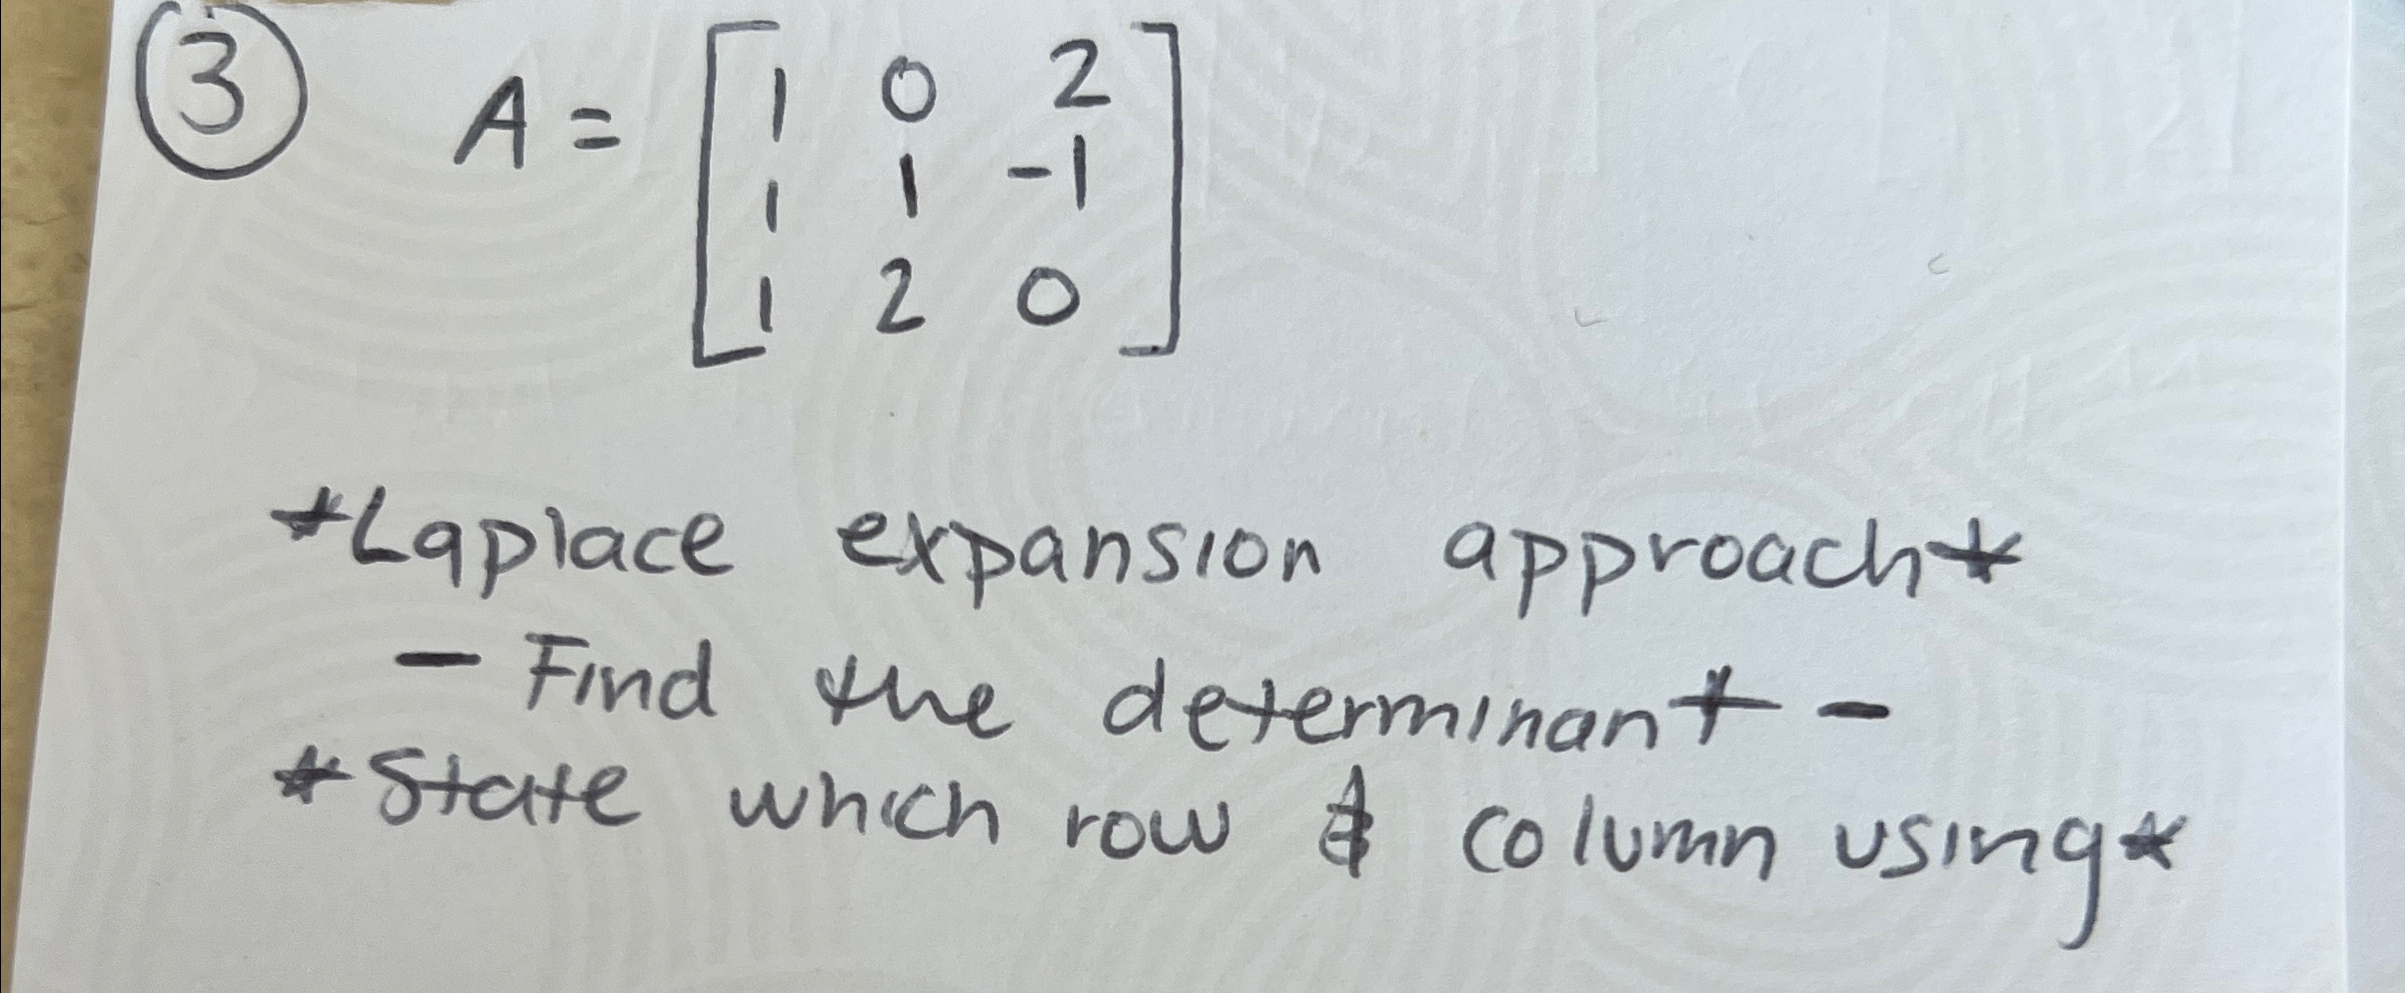 ③ A = [ 1 0 2
1 1 -1
1 2 0 ]
*Laplace expansion approach*
- Find the determinant -
*State which row & column using*